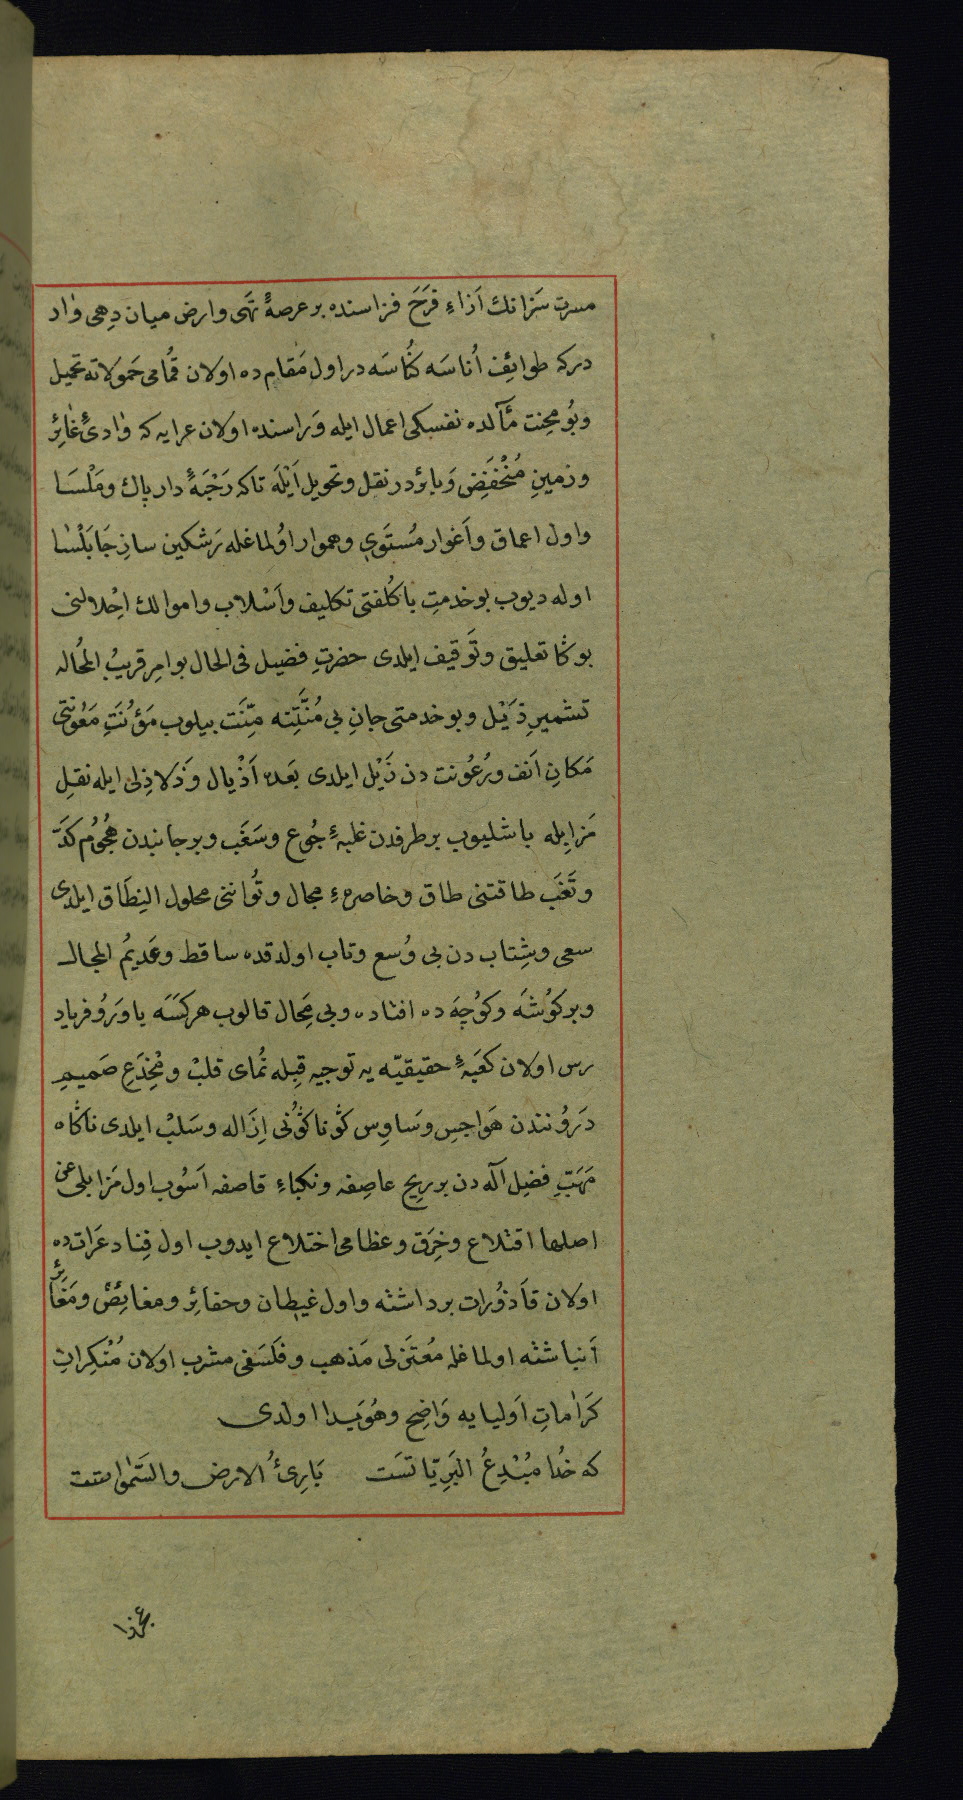 مسرت سَزانك اَذاءِ فرَحَ فزاسنده بر عرصهٔ تَهَى وارض ميان دِهى وٰاد
دركه طوائِف اُناسَه كنُاسَه در اول مَقام ده اولان قُمامى حَمَولاته تحميل
وبُو مِحِنت مآلده نفسكى اعمال ايله وَراسنده اولان عرايه كه وٰادئ غٰائِر
وزمينِ مُنْخَفِض وَبائر در نقل وتحويل اَيْلَه تاكه رَجَبَهٔ دار پاك ومَلْسَا
واول اعماق واَغوار مُستَوى وهموار اوُلماغله رَشكين سازِ جَابَلْسٰا
اوله ديوب بو خدمتِ باكُلفتى تكليف واَسْلاب واموالك اِحْلالنى
بوكا تعليق وتَوقيف ايلدى حضرتِ فضيل فى الحال بو امرِ قريبُ المُحاله
تشميرِ ذَيْل وبو خدمتى جانِ بى مُنَّتِنه مِنَّت بيلوب مَؤُنَتِ مَعُونتى
مَكانِ اَنف ورُعُونت دن ذَيْل ايلدى بَعده اَذْيال وَذَلاذِلى ايله نقلِ
مَزابِله باشليوب بر طرفدن غلبهٔ جُوع وسَغَب وبر جانبدن هُجُومُ كَدَّ
وتَعَب طاقتنى طاق وخاصرهءِ مجال وتُواننى محلول النِطَاق ايلدى
سعى وشِتاب دن بى وُسع وتاب اولدقده ساقط وعَديمُ المجال
وبر كوُشَه وكوُچَه ده افتاده وبى مَجال قالوب هر كسَه ياوَرُ وفرياد
رس اولان كعَبهٔ حقيقيّه يه توجيهِ قِبله نُماى قلبْ ومُخِدَعِ صَميمِ
دَرُونندن هَواجسِ وسَاوِس كوُناكوُنى اِزاله وسَلبْ ايلدى ناكاه
مَهَبِّ فضلِ آله دن بر ريحِ عاصِفه ونكباءِ قاصفه اَسُوب اول مَزابلى عن
اصلها اقتلاع وخِرَق وعظامى اختلاع ايدوب اول فِنا دعَرات ده
اولان قاَذوُرات برداشته واول غيطان وحفائر ومغائِض ومَغَائِر
اَنباشته اولماغله مُعتَزلى مَذهب وفلَسَفى مشرب اولان مُنْكِرانِ
كَرَاماتِ اَوليايه وَاضِح وهُوَيدا اولدى
كه خُدا مُبْدِعُ البَرِيّاتسَت    بَارِئُ الارض والسَّمٰواتست